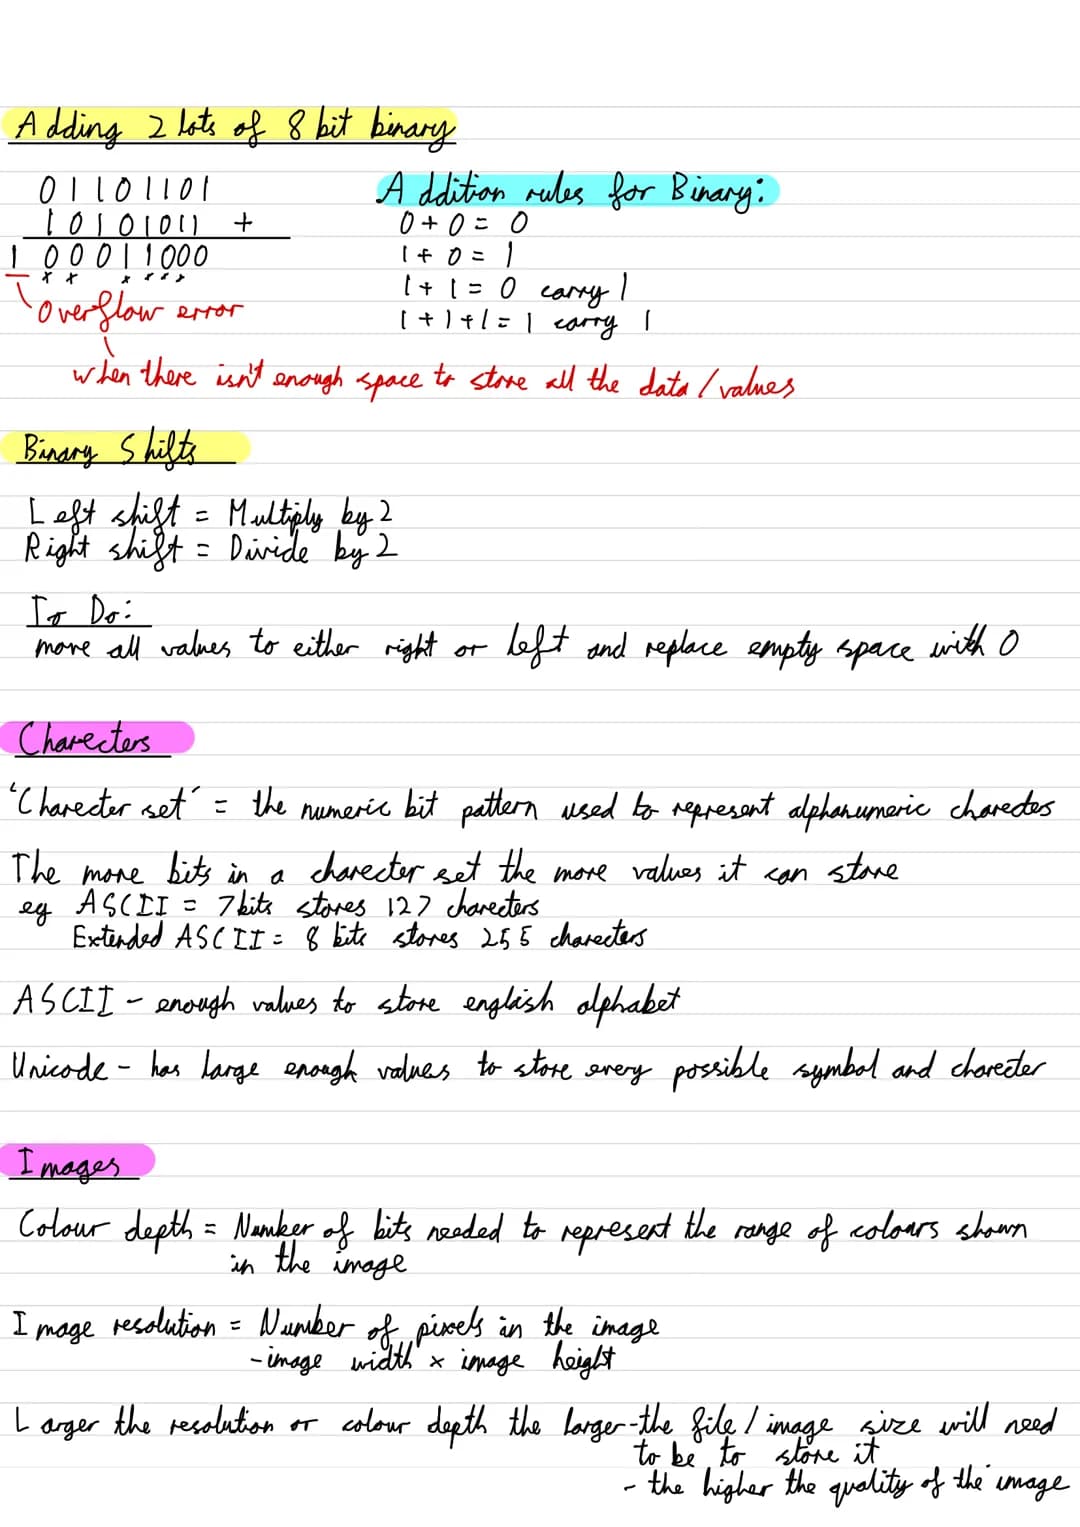 Adding 2 lots of 8 bit binary
01101101
10101011 +
1 00011000
x x x x x x
Overflow error
when there isn't enough space to store all the data / values
Addition rules for Binary:
0 + 0 = 0
1 + 0 = 1
1 + 1 = 0 carry 1
1 + 1 + 1 = 1 carry 1
Binary Shifts
Left shift = Multiply by 2
Right shift = Divide by 2
To Do:
move all values to either right or left and replace empty space with 0
Charecters
'Charecter set' = the numeric bit pattern used to represent alphanumeric charectes
The more bits in a charecter set the more values it can store
eg ASCII = 7 bits stores 127 charecters
Extended ASCII = 8 bits stores 255 charecters
ASCII - enough values to store english alphabet
Unicode - has large enough values to store every possible symbol and charecter
Images
Colour depth = Number of bits needed to represent the range of colours shown
in the image
Image resolution = Number of pixels in the image
- image width x image height
Larger the resolution or colour depth the larger the file / image size will need
to be to store it
- the higher the quality of the image